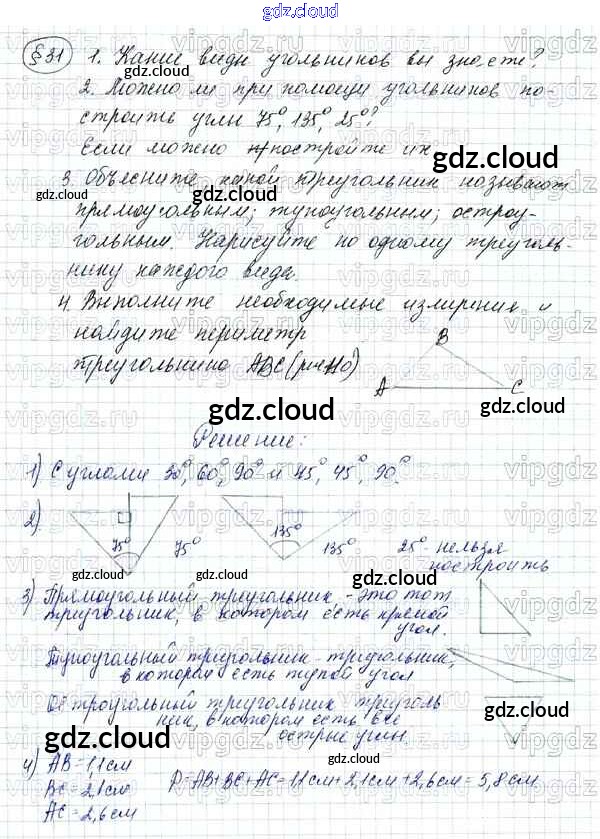 gdz.cloud
§31 1. Какие виды угольников вы знаете?
2. Можно ли при помощи угольников по-
строить углы 75°, 135°, 25°?
Если можно постройте их.
3. Объясните какой треугольник называют
прямоугольным; тупоугольным; остроу-
гольным. Нарисуйте по одному треуголь-
нику каждого вида.
4. Выполните необходимые измерения и
найдите периметр
треугольника ABC (рис 110)
B
A
C
Решение:
1) С углами 30°, 60°, 90° и 45°, 45°, 90°.
2)
75° 75° 135° 135° 25° - нельзя
построить
3) Прямоугольный треугольник - это тот
треугольник, в котором есть прямой
угол.
Тупоугольный треугольник - треугольник,
в котором есть тупой угол
Остроугольный треугольник треуголь
ник, в котором есть все
острые углы.
4) AB = 1,1 см
BC = 2,1 см
AC = 2,6 см
P = AB + BC + AC = 1,1 см + 2,1 см + 2,6 см = 5,8 см